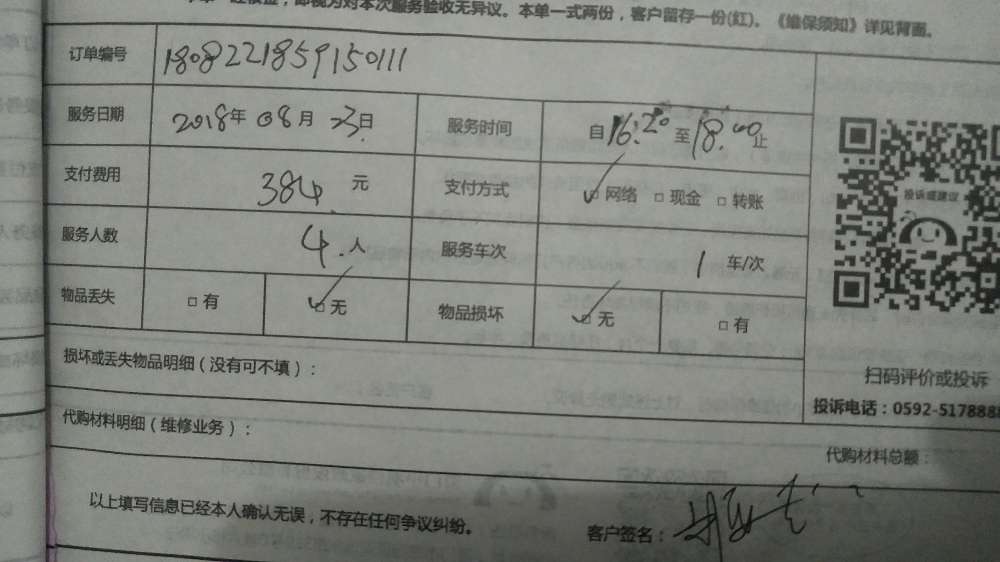 对本次服务验收无异议。本单一式两份，客户留存一份(红)。《维保须知》详见背面。
订单编号 1808221859150111
服务日期 2018年08月23日 服务时间 自16:20至18:00止
支付费用 384元 支付方式 ☑网络 □现金 □转账
服务人数 4人 服务车次 1车/次
物品丢失 □有 ☑无 物品损坏 ☑无 □有
损坏或丢失物品明细（没有可不填）：
代购材料明细（维修业务）：
代购材料总额：
以上填写信息已经本人确认无误，不存在任何争议纠纷。
客户签名：
投诉或建议
扫码评价或投诉
投诉电话：0592-5178888